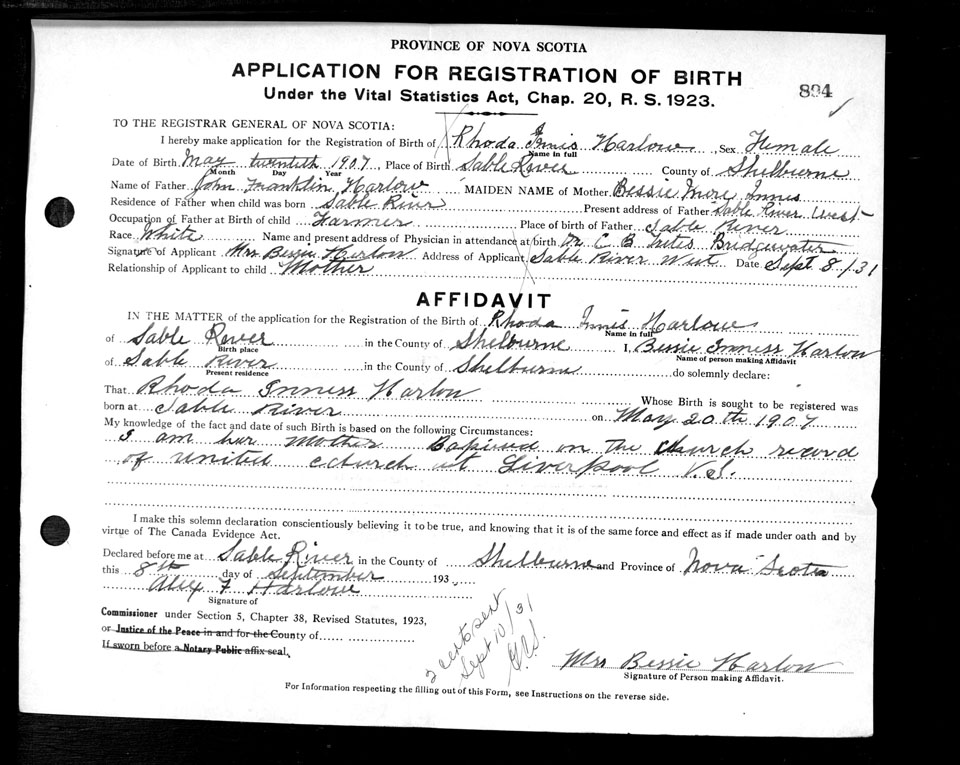 PROVINCE OF NOVA SCOTIA
APPLICATION FOR REGISTRATION OF BIRTH
894
Under the Vital Statistics Act, Chap. 20, R. S. 1923.
TO THE REGISTRAR GENERAL OF NOVA SCOTIA:
I hereby make application for the Registration of Birth of Rhoda Innis Harlow, Sex Female
Name in full
Date of Birth May twentieth 1907, Place of Birth Sable River County of Shelburne
Month Day Year
Name of Father John Franklin Harlow MAIDEN NAME of Mother Bessie More Innis
Residence of Father when child was born Sable River Present address of Father Sable River West
Occupation of Father at Birth of child Farmer Place of birth of Father Sable River
Race White Name and present address of Physician in attendance at birth Dr. C B Bridgewater
Signature of Applicant Mrs Bessie Harlow Address of Applicant Sable River West Date Sept 8/31
Relationship of Applicant to child Mother
AFFIDAVIT
IN THE MATTER of the application for the Registration of the Birth of Rhoda Innis Harlow
Name in full
of Sable River in the County of Shelburne I, Bessie Inness Harlow
Birth place Name of person making Affidavit
of Sable River in the County of Shelburne do solemnly declare:
Present residence
That Rhoda Inness Harlow Whose Birth is sought to be registered was
born at Sable River on May 20th 1907
My knowledge of the fact and date of such Birth is based on the following Circumstances:
I am her Mother Bapised on the church record
of United church at Liverpool N.S.
I make this solemn declaration conscientiously believing it to be true, and knowing that it is of the same force and effect as if made under oath and by
virtue of The Canada Evidence Act.
Declared before me at Sable River in the County of Shelburne and Province of Nova Scotia
this 8th day of September 193
Alex F Harlow
Signature of
Commissioner under Section 5, Chapter 38, Revised Statutes, 1923,
or Justice of the Peace in and for the County of
If sworn before a Notary Public affix seal.
2 cents sent
Sept 10/31
Mrs Bessie Harlow
Signature of Person making Affidavit.
For Information respecting the filling out of this Form, see Instructions on the reverse side.